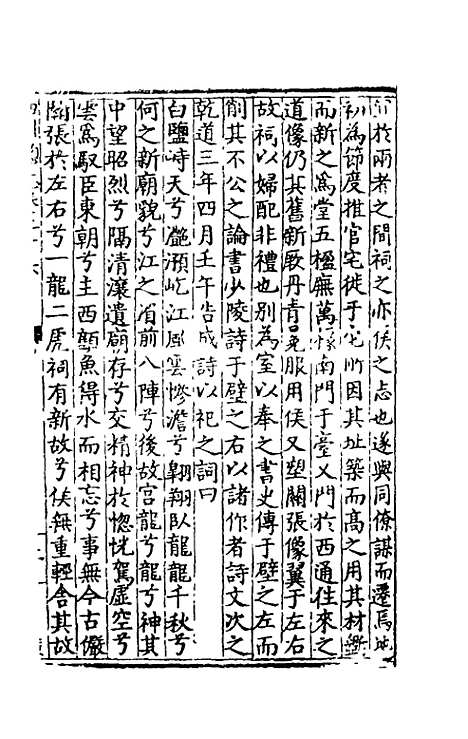 於兩者之間祠之亦侯之志也遂與同僚謀而遷焉地
初為節度推官宅徙于所因其址築而高之用其材
而新之為堂五楹廡萬椽南門于臺又門於西通往來之
道像仍其舊新敞丹青冕服用侯又塑關張像翼于左右
故祠以婦配非禮也别為室以奉之書史傳于壁之左而
削其不公之論書少陵詩于壁之右以諸作者詩文次之
乾道三年四月壬午告成詩以祀之詞曰
白鹽峙天兮灔澦屹江風雲慘澹兮翱翔臥龍龍千秋兮
何之新廟貌兮江之湄前八陣兮後故宫龍兮龍兮神其
中望昭烈兮隔清瀼遺廟存兮交精神於惚恍駕虛空兮
雲為馭臣東朝兮主西顧魚得水而相忘兮事無今古儼
關張於左右兮一龍二虎祠有新故兮侯無重輕舍其故